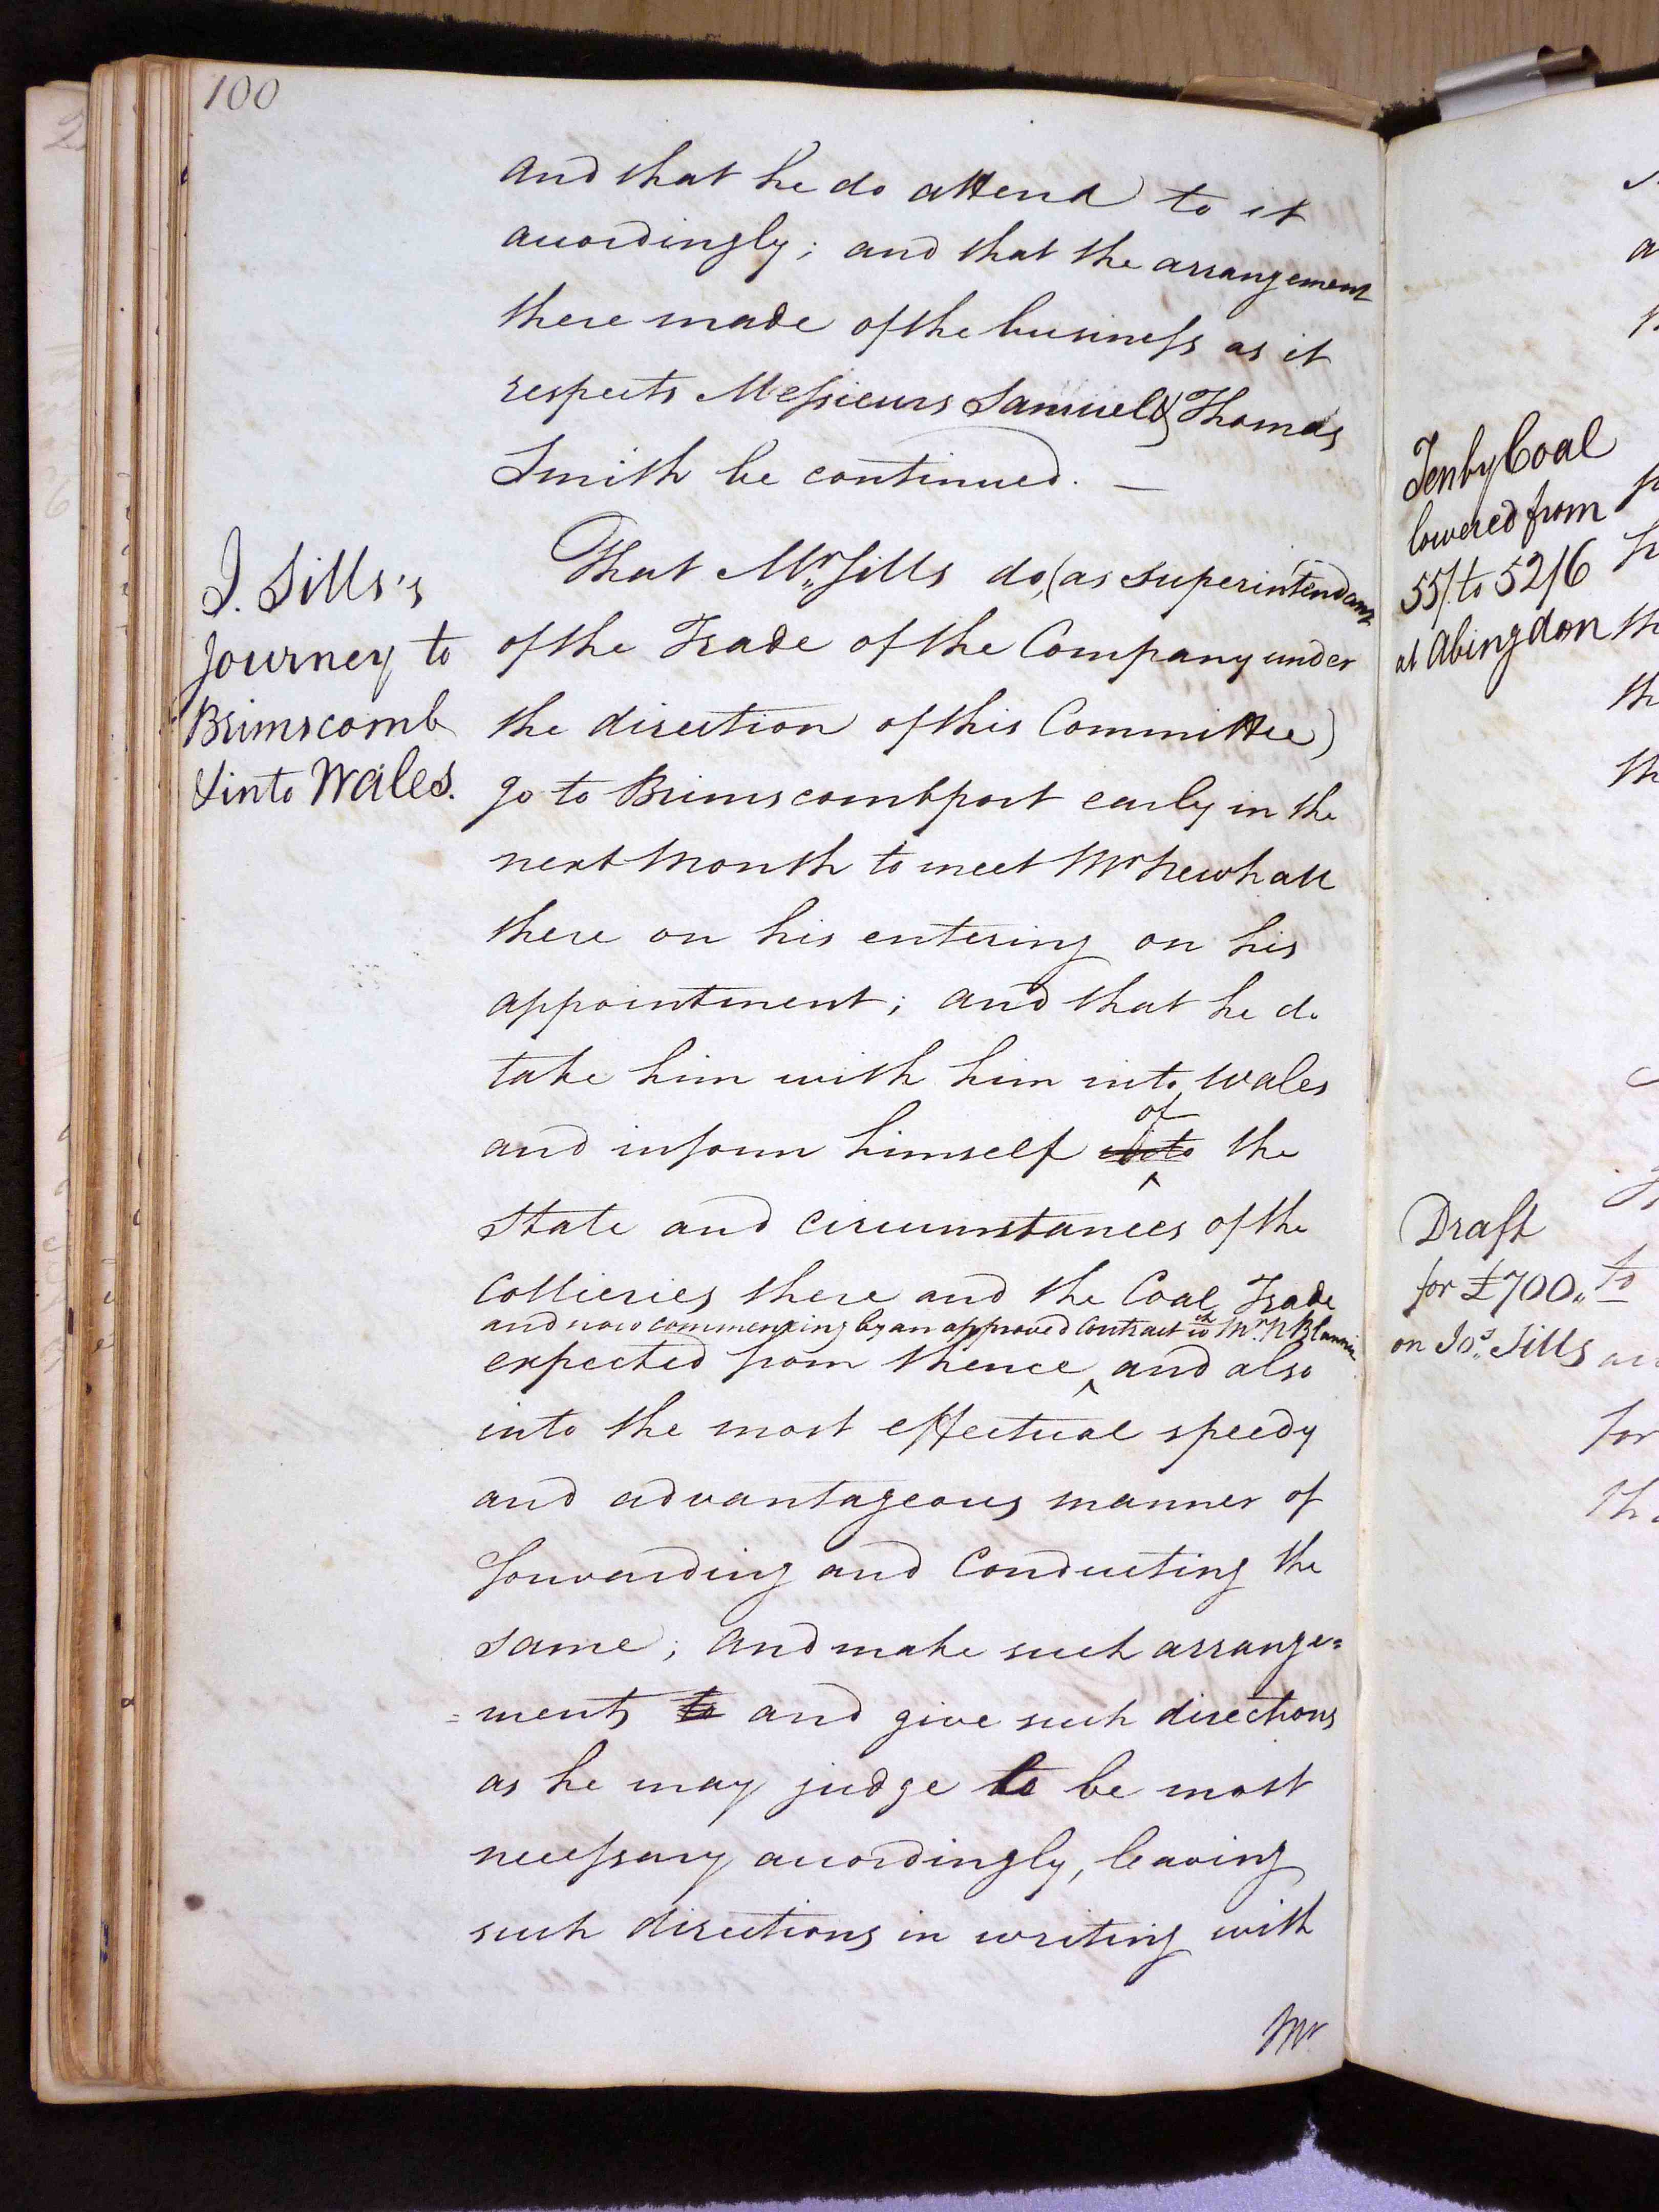 100
and that he do attend to it
accordingly; and that the arrangement
there made of the business as it
respects Messieurs Samuel & Thomas
Smith be continued. —
J. Sills's
Journey to
Brimscomb
& into Wales.
That Mr. Sills do, (as superintendant
of the Trade of the Company under
the direction of this Committee)
go to Brimscombport early in the
next Month to meet Mr Newhall
there on his entering on his
appointment; and that he do
take him with him into Wales
of
and inform himself into the
State and circumstances of the
Collieries there and the Coal Trade
and now commencing by an approved Contract wth Mr. N
expected from thence and also
into the most effectual speedy
and advantageous manner of
forwarding and Conducting the
same; and make such arrange=
=ments to and give such directions
as he may judge to be most
necessary accordingly, leaving
such directions in writing with
Mr.
Tenby Coal
lowered from
55/. to 52/6
at Abingdon
Draft
for £700,,
on Jos. Sills